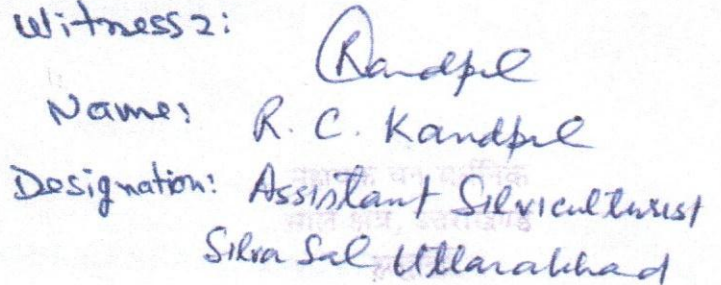 Witness 2:
Kandpal
Name: R. C. Kandpal
Designation: Assistant Silviculturist
साल क्षेत्र, उत्तराखण्ड
Silva Sal Uttarakhad